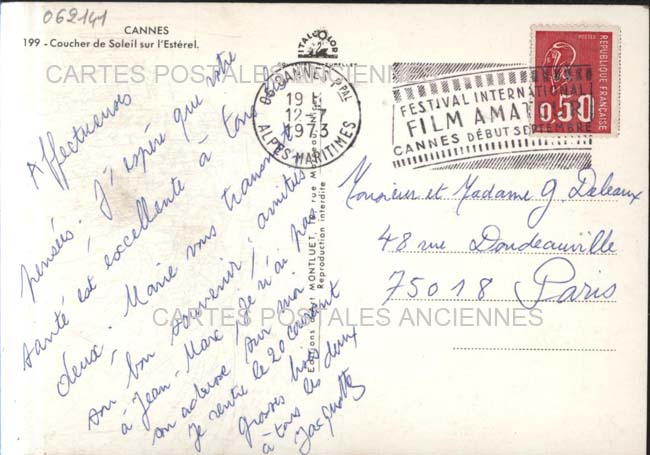 062141
CANNES
199 - Coucher de Soleil sur l'Estérel.
ITALCOLOR
CARTES POSTALES ANCIENNES
06 CANNES PPAL
19 H
12-7
1973
ALPES MARITIMES
FESTIVAL INTERNATIONAL
FILM AMAT
CANNES DÉBUT SEPTEMBRE
POSTES
0,50
REPUBLIQUE FRANÇAISE
Affectueuses
pensées. J'espère que votre
santé est excellente à tous
deux. Marie vous transmet
son bon souvenir, amitiés
à Jean-Marc, je n'ai pas
son adresse sur moi
Je rentre le 20 courant
Grosses bises
à tous les deux
Jacquotte
Editions d'art MONTLUET, rue
Reproduction interdite
Monsieur et Madame G. Deleaux
48 rue Doudeauville
75018 Paris
CARTES POSTALES ANCIENNES